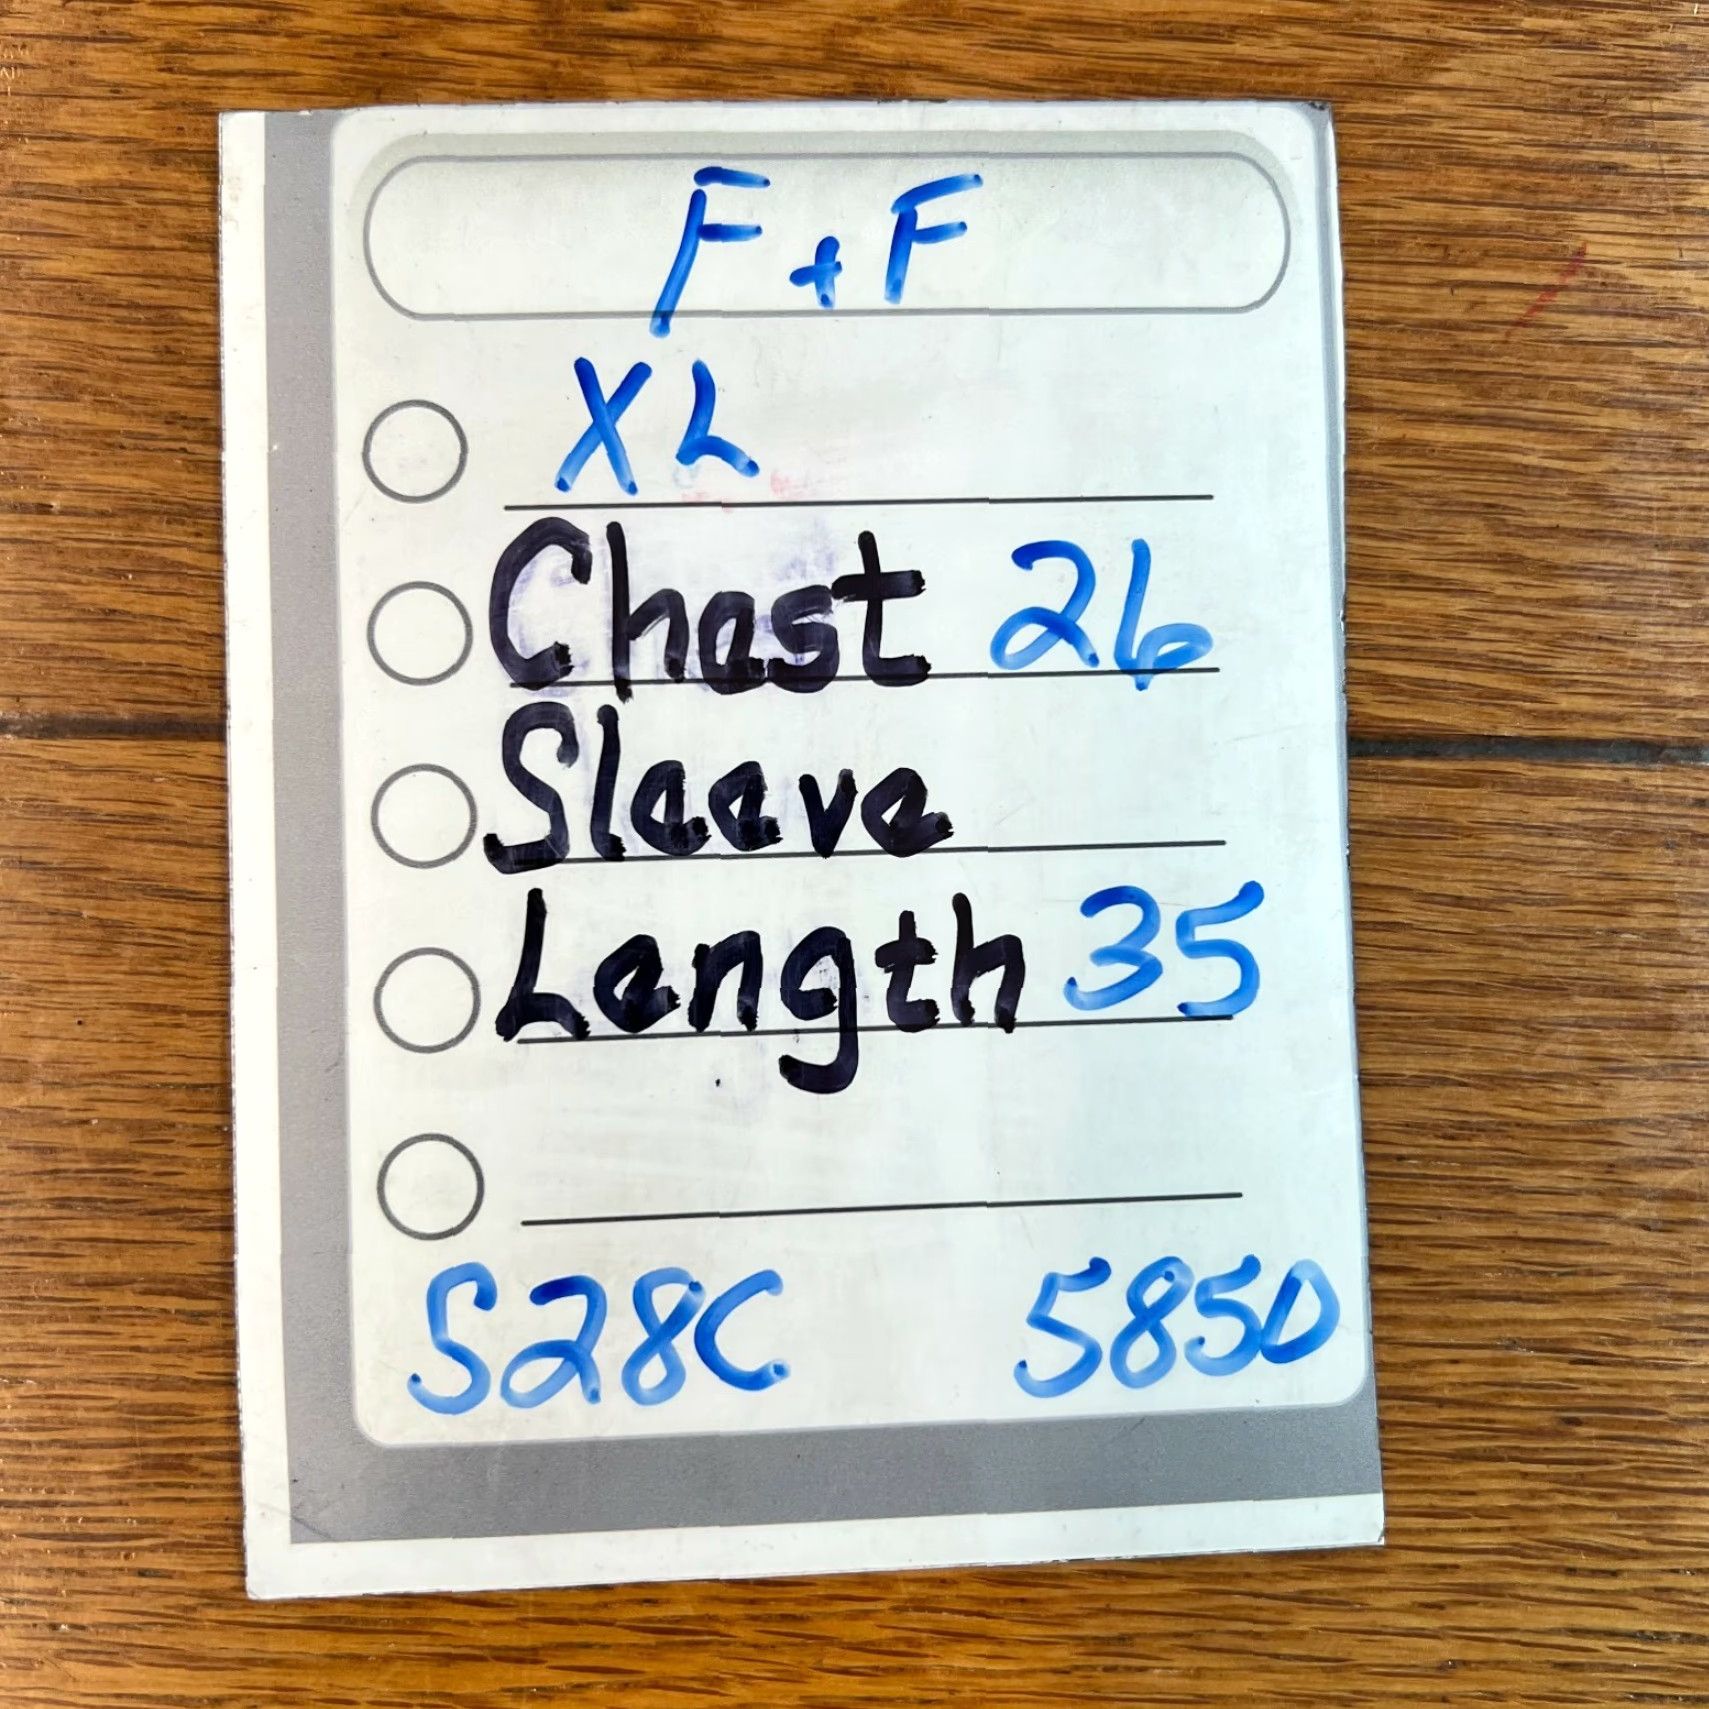 F + F
XL
Chest 26
Sleeve
Length 35
S28C 585D